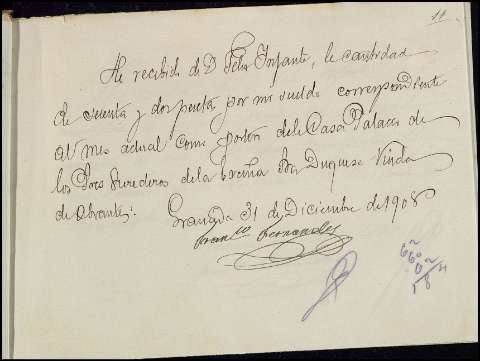 11
He recibido de D Felix Infante, la cantidad
de sesenta y dos pesetas por mi sueldo correspondiente
al mes actual como porton de la Casa Palacio de
los Sres Herederos de la Excma Sra Duquesa Viuda
de Abrantes.
Granada 31 de Diciembre de 1908
Franco Fernandez